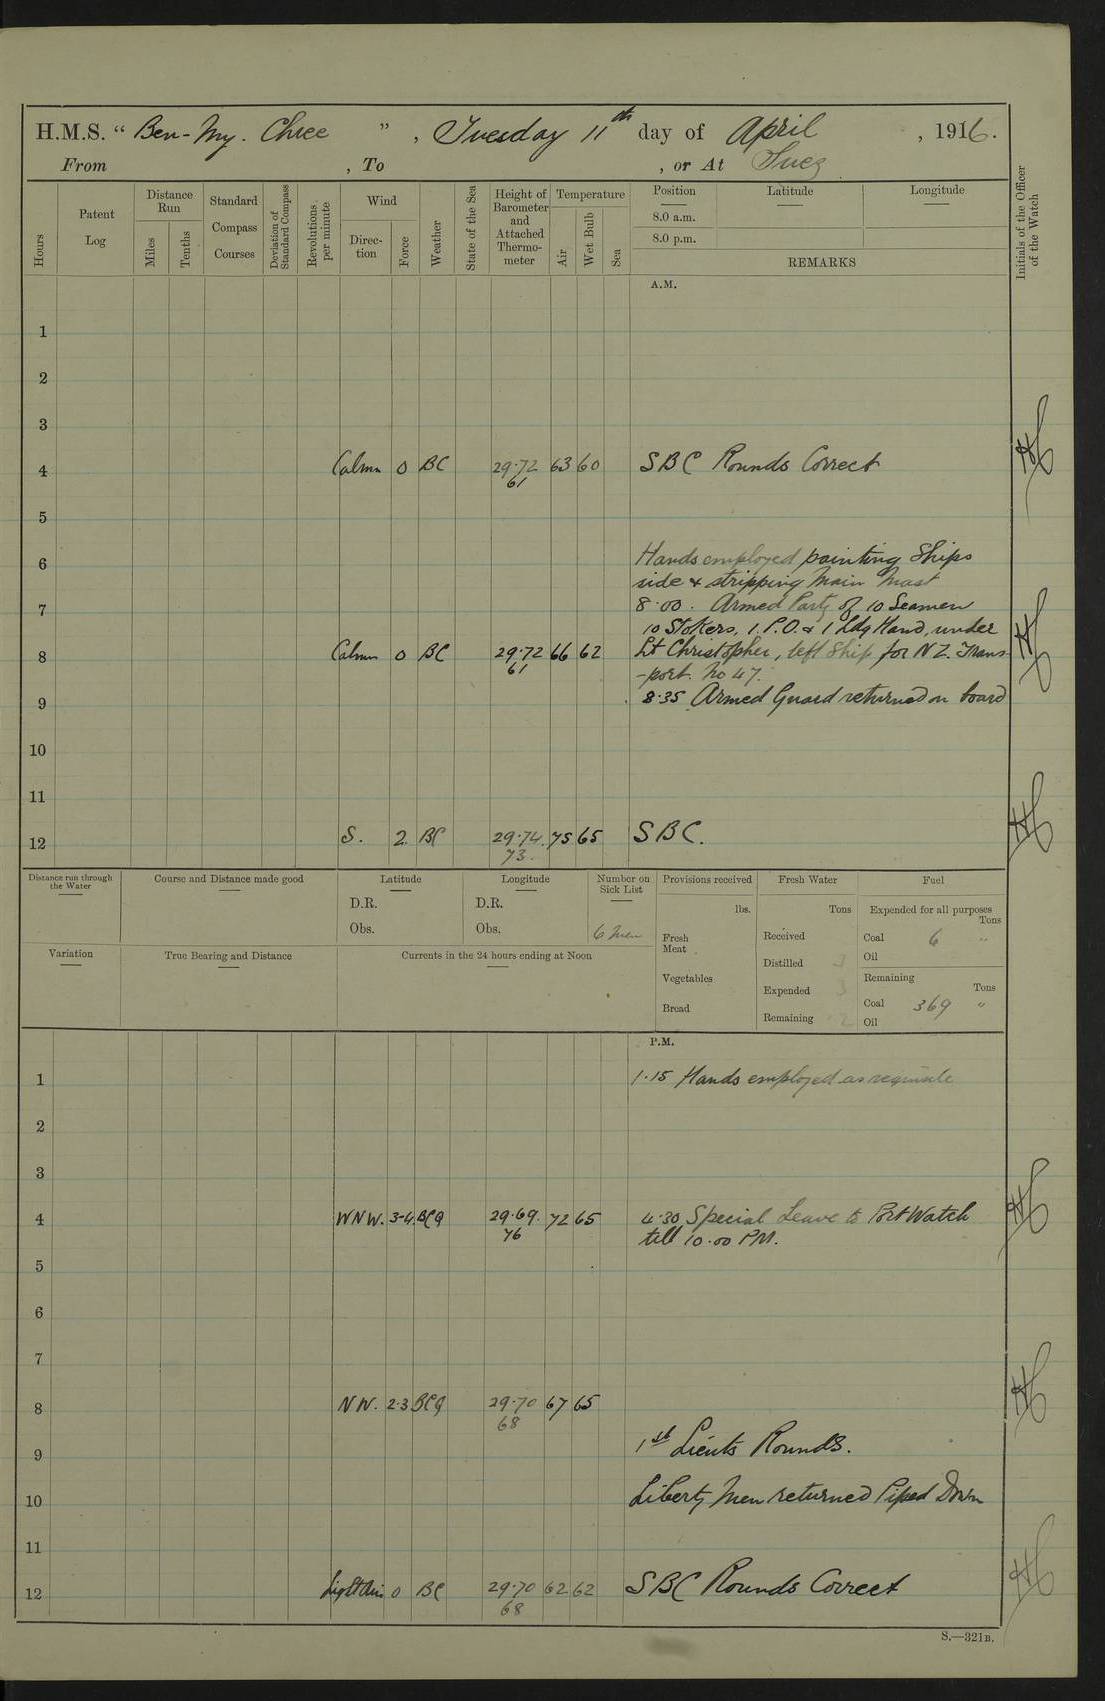 H.M.S. “ Ben-My. Chree ” , Tuesday 11th day of April , 1916.
From , To , or At Suez
Hours
Patent Log
Distance Run
Miles
Tenths
Standard Compass Courses
Deviation of Standard Compass
Revolutions per minute
Wind
Direc-tion
Force
Weather
State of the Sea
Height of Barometer and Attached Thermo-meter
Temperature
Air
Wet Bulb
Sea
Position
Latitude
Longitude
8.0 a.m.
8.0 p.m.
REMARKS
Initials of the Officer of the Watch
A.M.
1
2
3
4 Calm 0 BC 29.72 63 60 SBC Rounds Correct
61
5
Hands employed painting Ships
6
side & stripping Main Mast
7 8.00. Armed Party of 10 Seamen
10 Stokers, 1. P.O. & 1 Ldg Hand, under
8 Calm 0 BC 29.72 66 62 Lt Christopher, left Ship for N Z. Trans-
61
-port. No 47.
9 8.35 Armed Guard returned on board
10
11
12 S. 2. BC 29.74 75 65 SBC.
73.
Distance run through the Water
Course and Distance made good
Latitude
D.R.
Obs.
Longitude
D.R.
Obs.
Number on Sick List
6 men
Provisions received
lbs.
Fresh Meat
Vegetables
Bread
Fresh Water
Tons
Received
Distilled 3
Expended 3
Remaining
Fuel
Expended for all purposes
Tons
Coal 6 "
Oil
Remaining
Tons
Coal 369 "
Oil
Variation
True Bearing and Distance
Currents in the 24 hours ending at Noon
P.M.
1 1.15 Hands employed as requisite
2
3
4 WNW. 3-4 BCQ 29.69. 72 65 4.30 Special Leave to Port Watch
76 till 10.00 PM.
5
6
7
8 NW. 2.3 BCQ 29.70 67 65
68
9 1st Lieuts Rounds.
10 Liberty Men returned Piped Down
11
12 Light Airs 0 BC 29.70 62 62 SBC Rounds Correct
68
S.—321B.